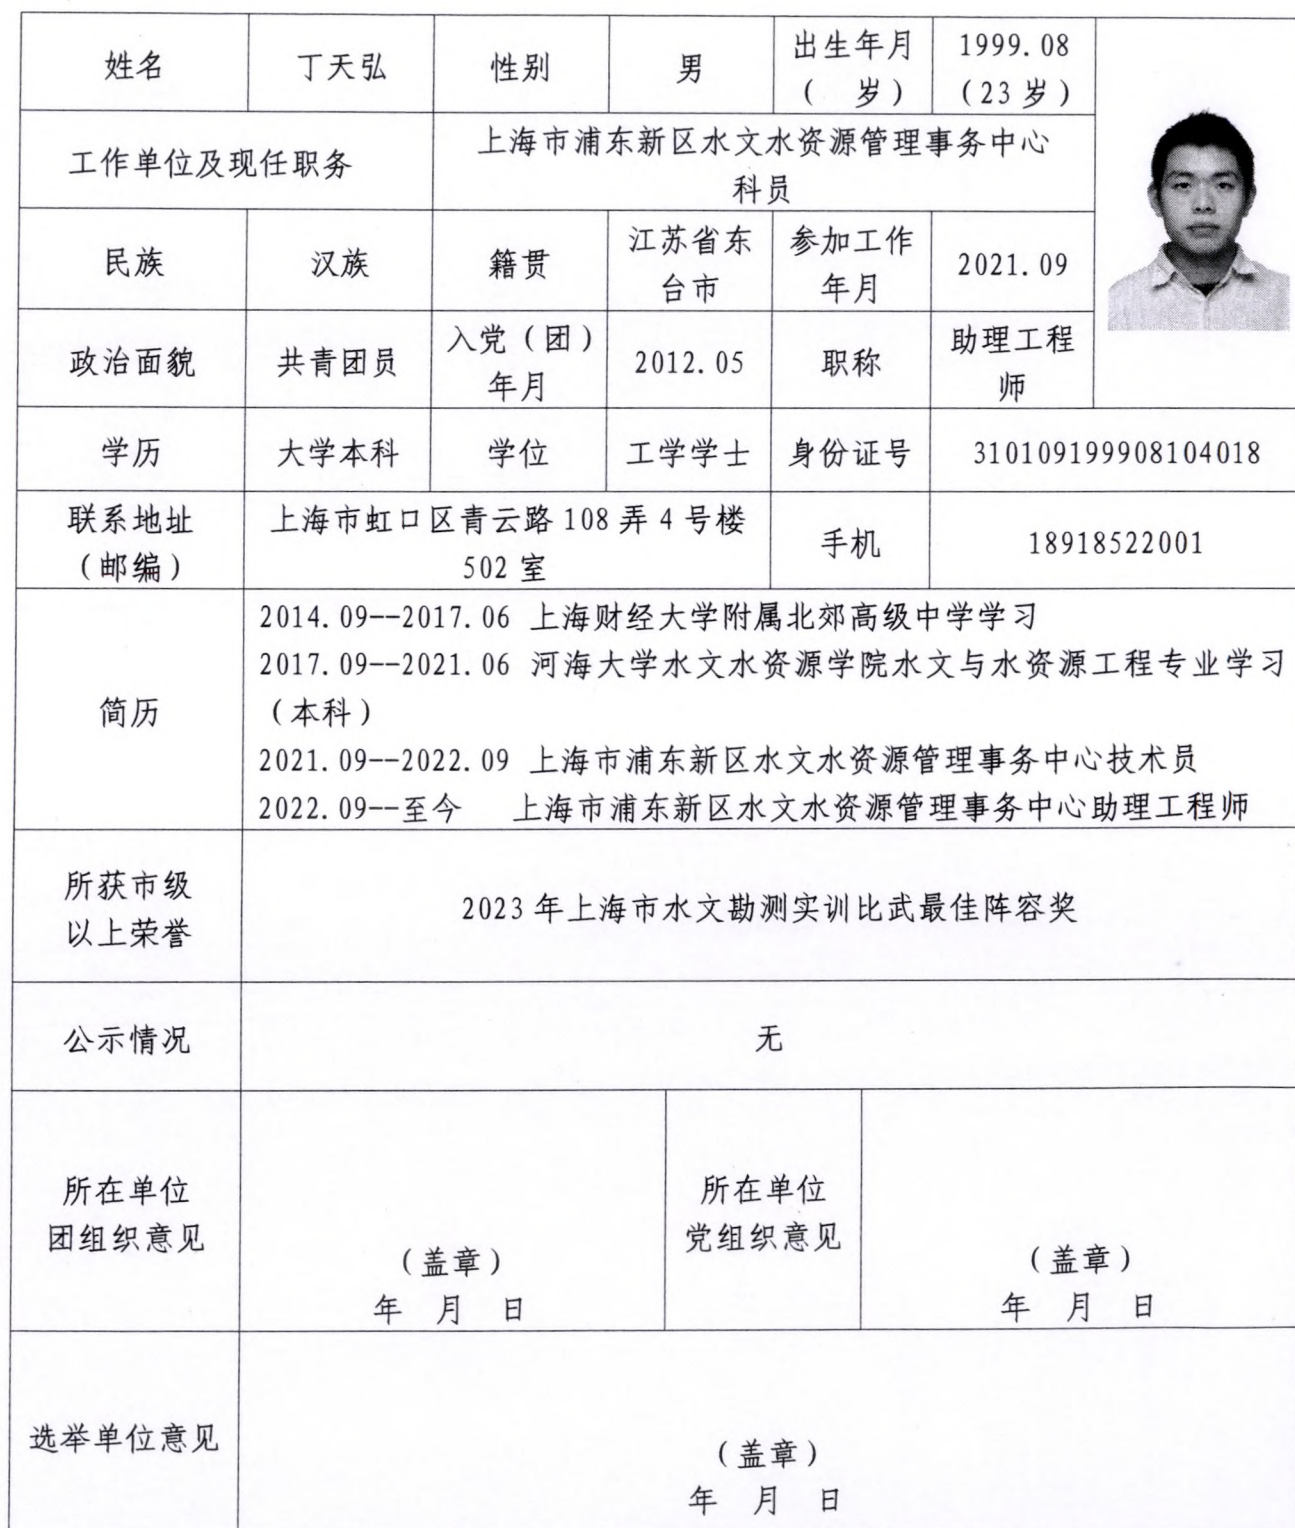 姓名 丁天弘 性别 男 出生年月 1999.08
( 岁) (23岁)
工作单位及现任职务 上海市浦东新区水文水资源管理事务中心
科员
民族 汉族 籍贯 江苏省东 参加工作 2021.09
台市 年月
政治面貌 共青团员 入党（团） 2012.05 职称 助理工程
年月 师
学历 大学本科 学位 工学学士 身份证号 310109199908104018
联系地址 上海市虹口区青云路108弄4号楼 手机 18918522001
（邮编） 502室
简历
2014.09--2017.06 上海财经大学附属北郊高级中学学习
2017.09--2021.06 河海大学水文水资源学院水文与水资源工程专业学习
（本科）
2021.09--2022.09 上海市浦东新区水文水资源管理事务中心技术员
2022.09--至今 上海市浦东新区水文水资源管理事务中心助理工程师
所获市级
以上荣誉 2023年上海市水文勘测实训比武最佳阵容奖
公示情况 无
所在单位 所在单位
团组织意见 党组织意见
（盖章） （盖章）
年 月 日 年 月 日
选举单位意见
（盖章）
年 月 日